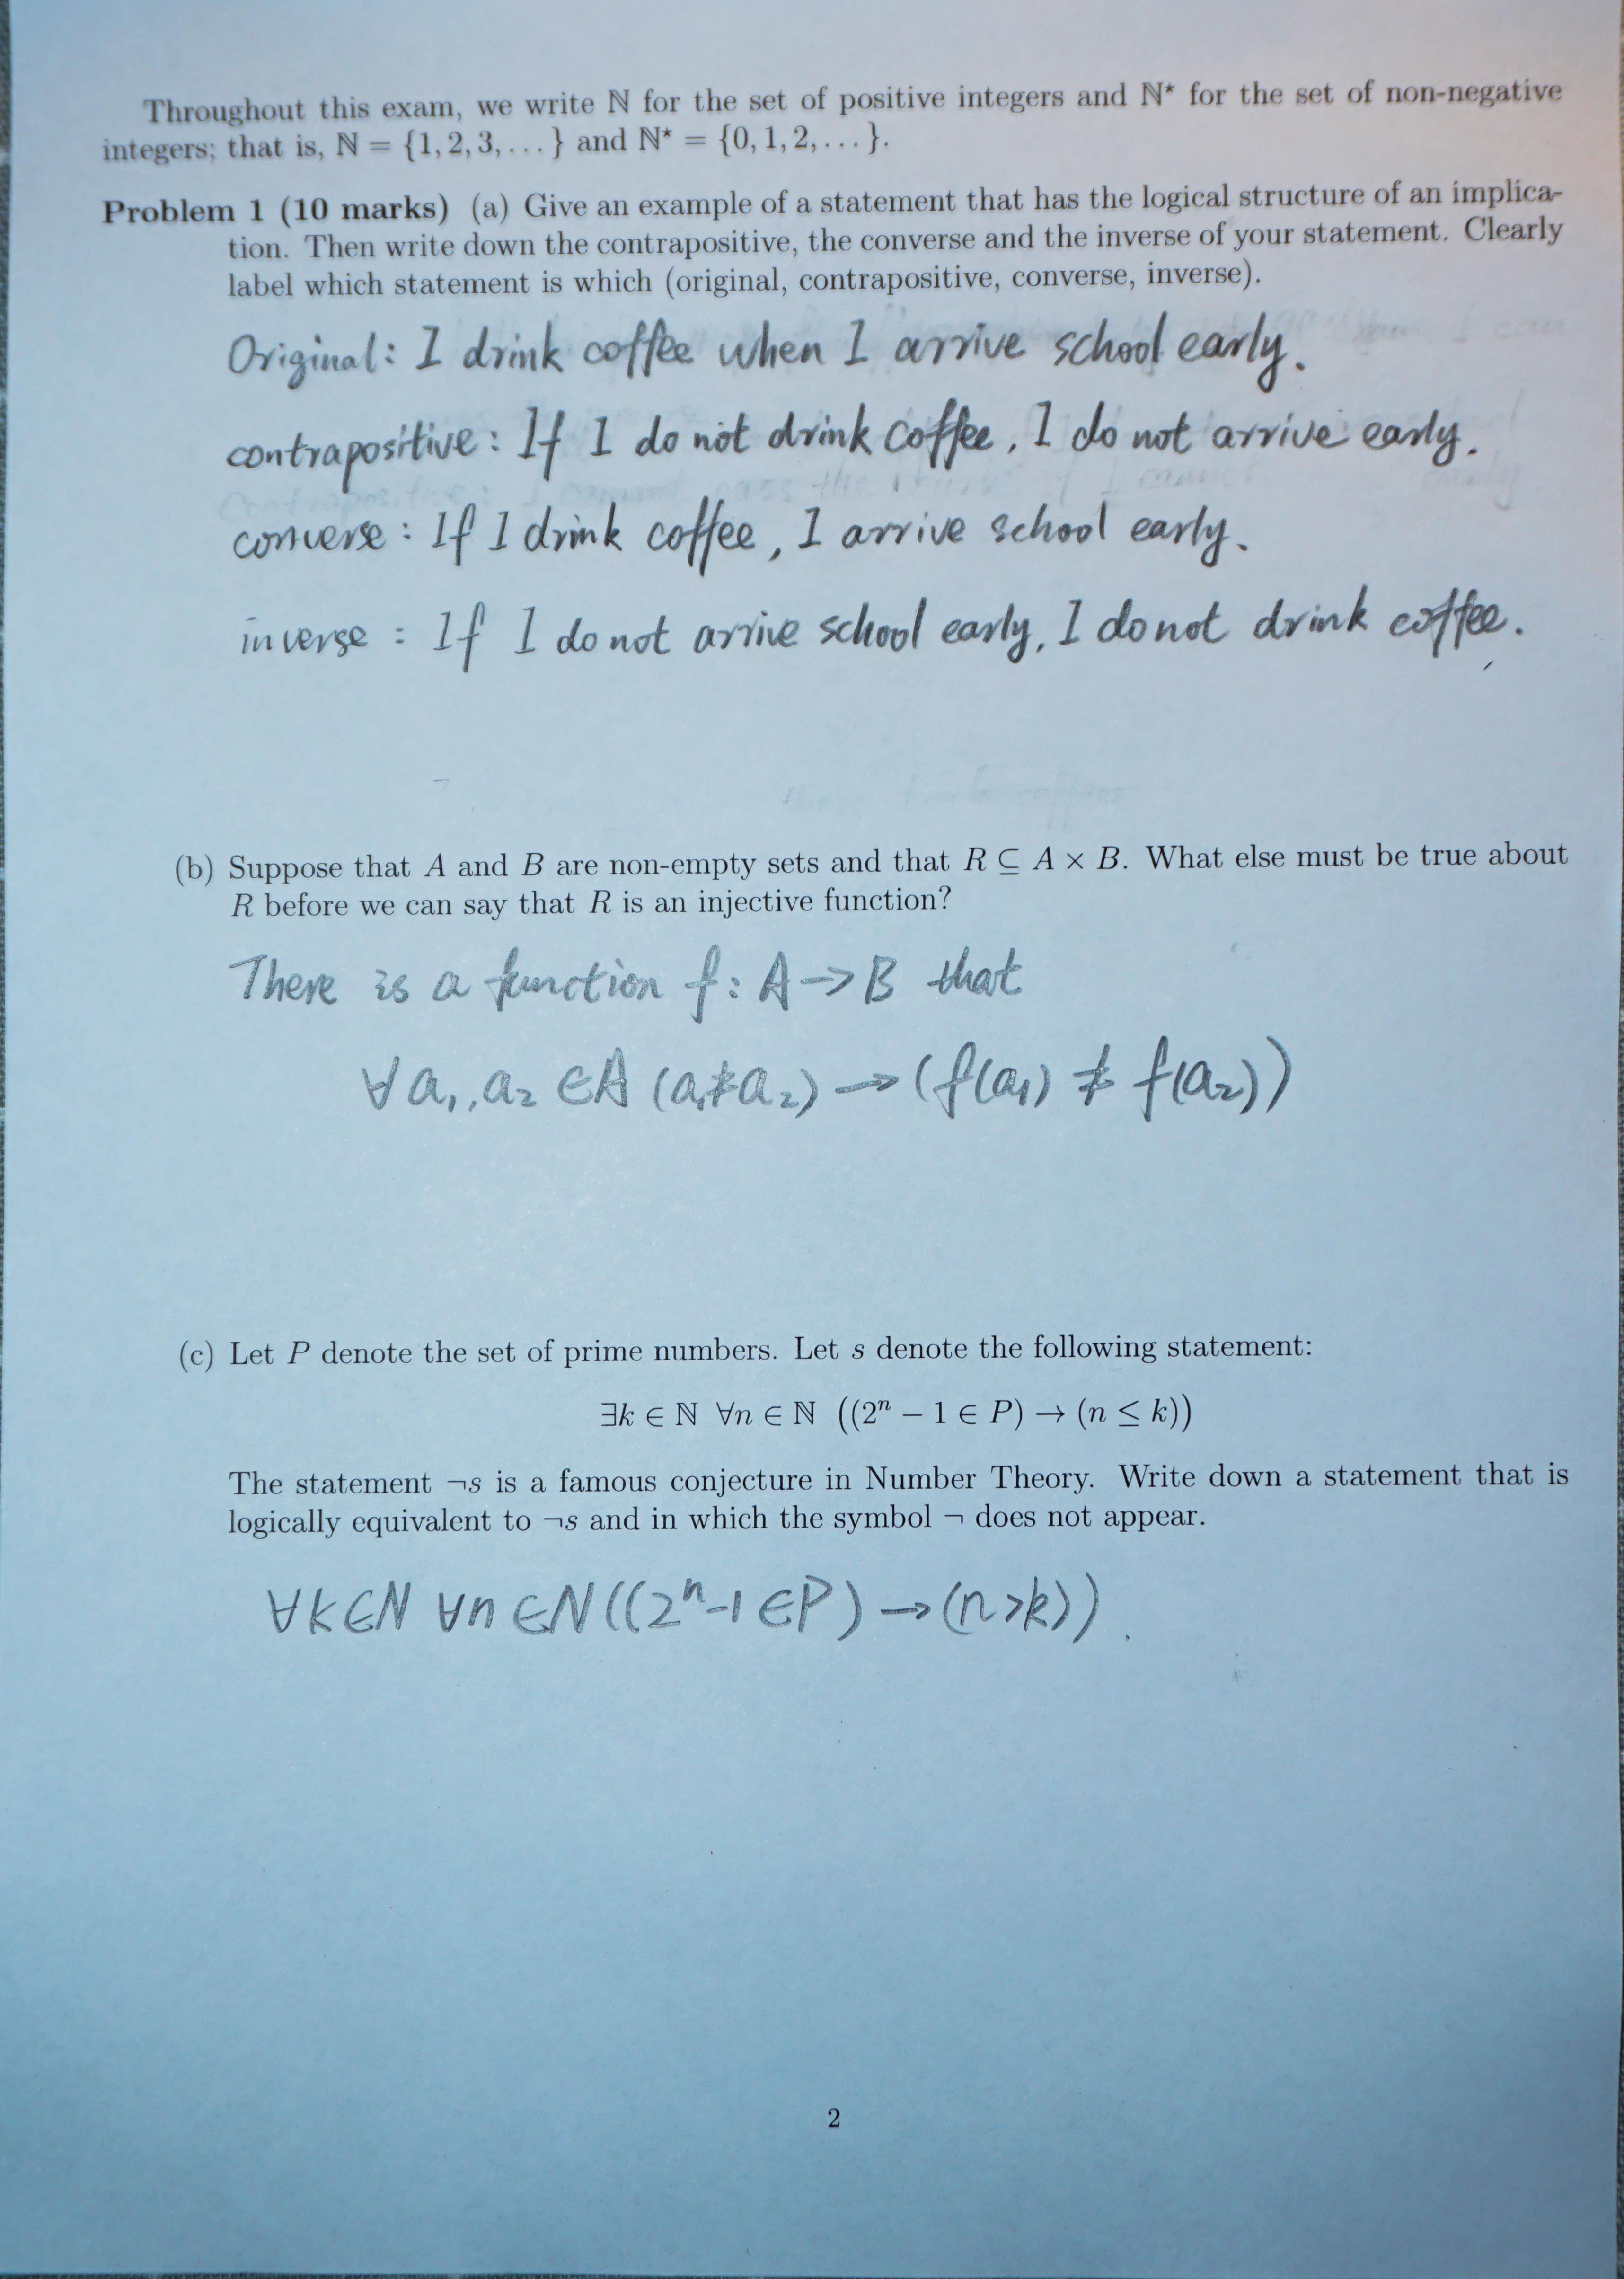 Throughout this exam, we write ℕ for the set of positive integers and ℕ* for the set of non-negative
integers; that is, ℕ = {1, 2, 3, . . . } and ℕ* = {0, 1, 2, . . . }.
Problem 1 (10 marks) (a) Give an example of a statement that has the logical structure of an implica-
tion. Then write down the contrapositive, the converse and the inverse of your statement. Clearly
label which statement is which (original, contrapositive, converse, inverse).
Original: I drink coffee when I arrive school early.
contrapositive: If I do not drink coffee, I do not arrive early.
converse: If I drink coffee, I arrive school early.
inverse: If I do not arrive school early, I do not drink coffee.
(b) Suppose that A and B are non-empty sets and that R ⊆ A × B. What else must be true about
R before we can say that R is an injective function?
There is a function f: A→B that
∀ a₁, a₂ ∈ A (a₁≠a₂) → (f(a₁) ≠ f(a₂))
(c) Let P denote the set of prime numbers. Let s denote the following statement:
∃k ∈ ℕ ∀n ∈ ℕ ((2ⁿ − 1 ∈ P) → (n ≤ k))
The statement ¬s is a famous conjecture in Number Theory. Write down a statement that is
logically equivalent to ¬s and in which the symbol ¬ does not appear.
∀k∈N ∀n∈N((2ⁿ-1∈P) → (n>k)).
2